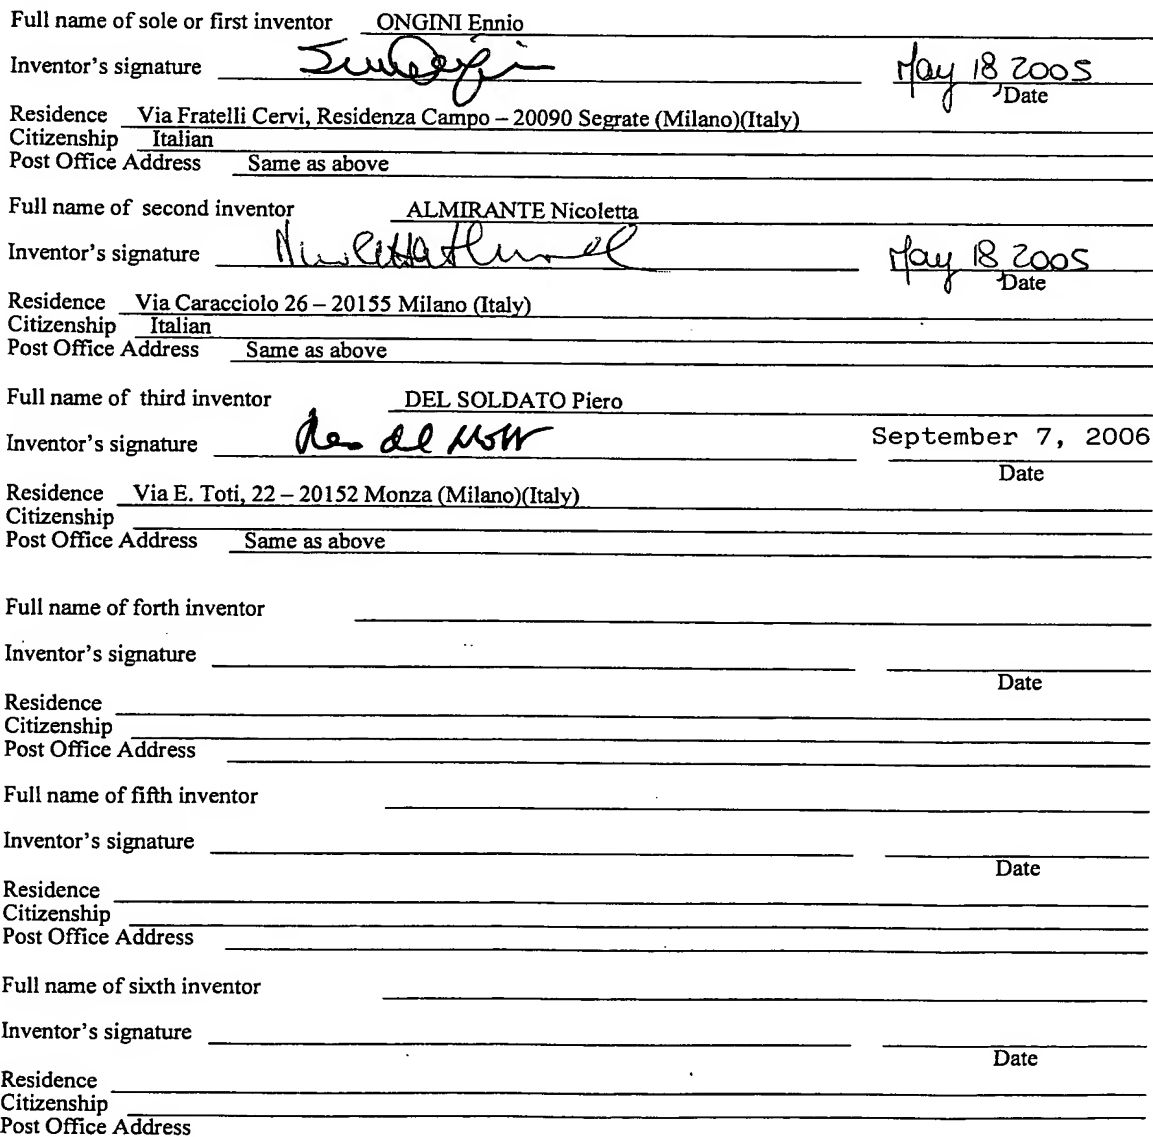 Full name of sole or first inventor ONGINI Ennio
Inventor's signature May 18, 2005
Date
Residence Via Fratelli Cervi, Residenza Campo – 20090 Segrate (Milano)(Italy)
Citizenship Italian
Post Office Address Same as above
Full name of second inventor ALMIRANTE Nicoletta
Inventor's signature May 18, 2005
Date
Residence Via Caracciolo 26 – 20155 Milano (Italy)
Citizenship Italian
Post Office Address Same as above
Full name of third inventor DEL SOLDATO Piero
Inventor's signature September 7, 2006
Date
Residence Via E. Toti, 22 – 20152 Monza (Milano)(Italy)
Citizenship
Post Office Address Same as above
Full name of forth inventor
Inventor's signature
Date
Residence
Citizenship
Post Office Address
Full name of fifth inventor
Inventor's signature
Date
Residence
Citizenship
Post Office Address
Full name of sixth inventor
Inventor's signature
Date
Residence
Citizenship
Post Office Address